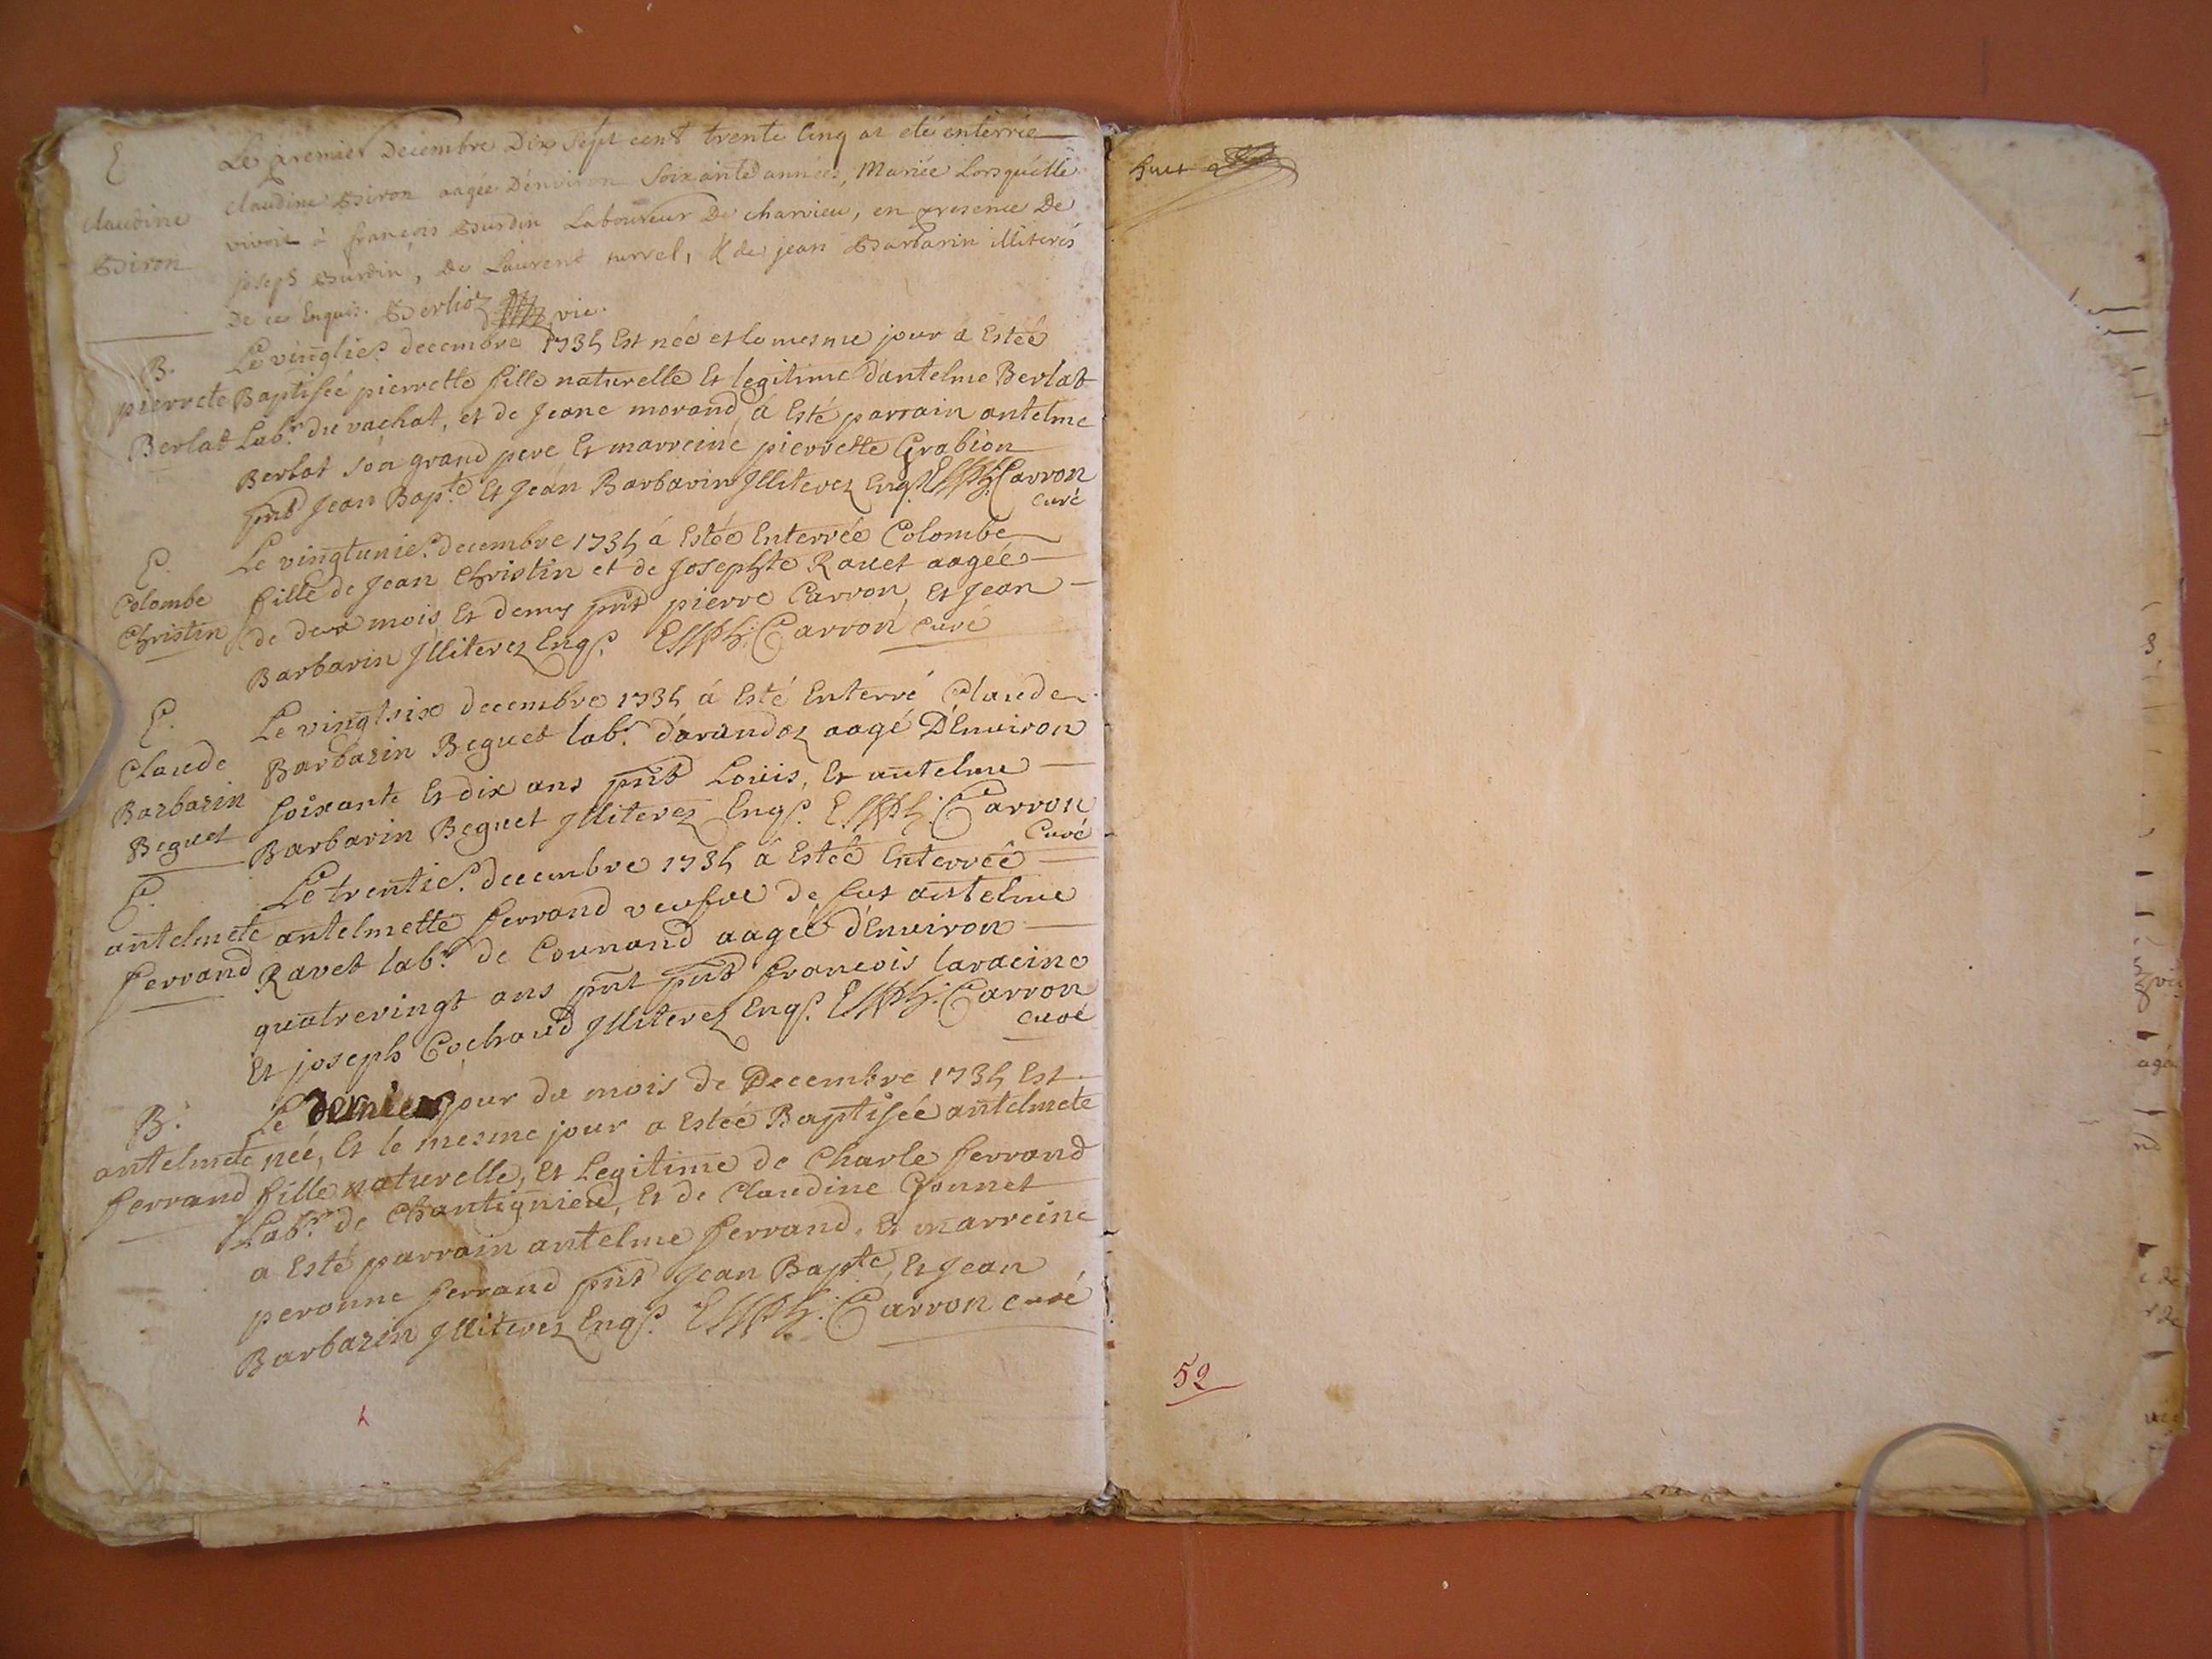 E Le premier Decembre Dix Sept cent trente Cinq at eté enterrée
claudine Biron aagée D'environ Soixante années, Mariée Lorsquélle
Claudine
vivoit à françois Burdin Laboureur De charvieu, en presence De
Biron
joseph Burdin, De Laurent turrel, & de jean Barbarin illiterés
De ce Enquis. Berlioz vic.
B. Le vingtie.e decembre 1735 Est née et le mesme jour á Esteé
pierrete Baptiseé pierrette fille naturelle Et legitime d'antelme Berlat
Berlat Lab.r du vachat, et de Jeane morand á Esté parrain antelme
Berlat son grand pere Et marreine pierrette Grabion
pnts Jean Bap.te Et Jean Barbarin Jlliterez Enq.s Carron
curé
E. Le vingtunie.e decembre 1735 á Estée Enterrée Colombe
Colombe fille de Jean Christin et de Josephte Rauet aagée
Christin de deux mois Et demy pnts pierre Carron, Et Jean
Barbarin Jlliterez Enq.s Carron curé
E. Le vingtsix decembre 1735 á Esté Enterré Claude
Claude Barbarin Beguet lab.r d'arandoz aagé D'Enuiron
Barbarin soixante Et dix ans pnts Louis, Et antelme
Beguet Barbarin Beguet Jlliterez Enq.s Carron
Curé
E. Le trentie.e decembre 1735 á Estée Enterreé
antelmete antelmette ferrand veufue de fut antelme
ferrand Ravet lab.r de Counand aageé d'Enuiron
quatrevingt ans pnt pnts francois laracine
Et joseph Cochaud Jlliterez Enq.s Carron
curé
B. Le dernier jour du mois de Decembre 1735 Est
antelmete née, Et le mesme jour a Esteé Baptiseé antelmete
ferrand fille naturelle, Et Legitime de Charle ferrand
Lab.r de Chantignieu, Et de Claudine Gonnet
a Esté parrain antelme ferrand, Et marreine
peronne ferrand pnts Jean Bap.te, Et Jean
Barbarin Jlliterez Enq.s Carron curé
huit
52